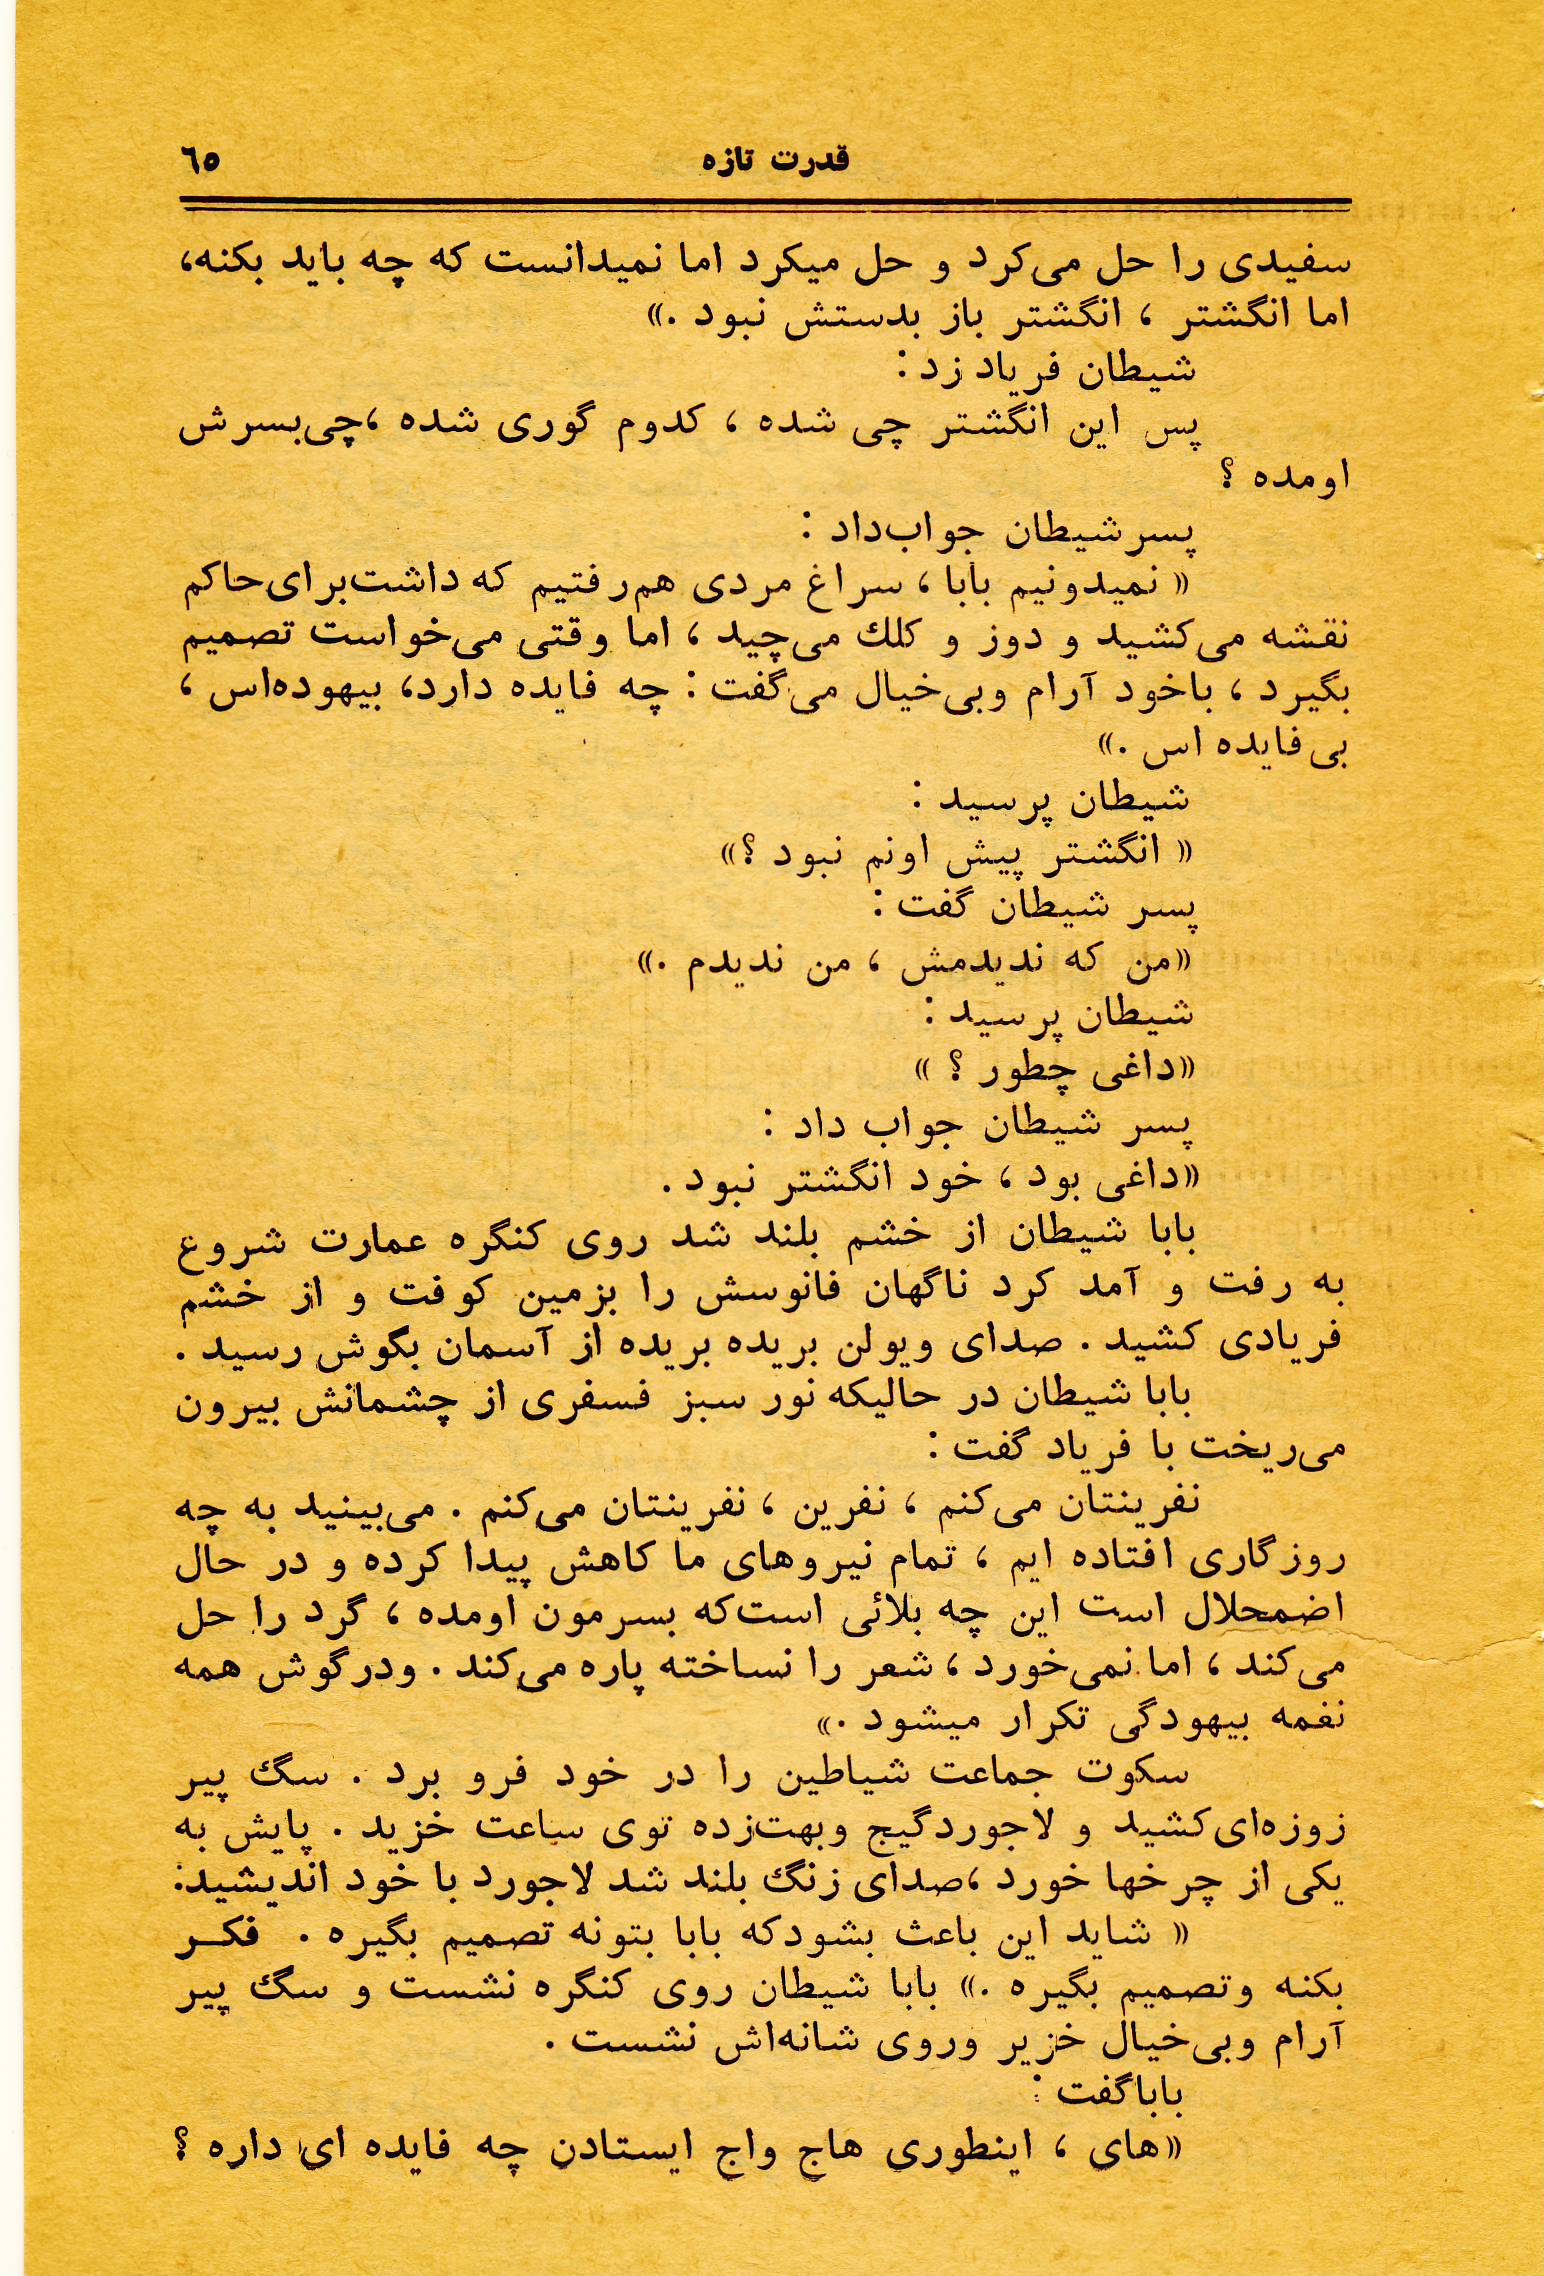 قدرت تازه ٦٥
سفیدی را حل می‌کرد و حل میکرد اما نمیدانست که چه باید بکنه،
اما انگشتر ، انگشتر باز بدستش نبود .»
شیطان فریاد زد :
پس این انگشتر چی شده ، کدوم گوری شده ،چی‌بسرش
اومده ؟
پسرشیطان جواب‌داد :
« نمیدونیم بابا ، سراغ مردی هم‌رفتیم که داشت‌برای‌حاکم
نقشه می‌کشید و دوز و کلك می‌چید ، اما وقتی می‌خواست تصمیم
بگیرد ، باخود آرام وبی‌خیال می‌گفت : چه فایده دارد، بیهوده‌اس ،
بی‌فایده اس .»
شیطان پرسید :
« انگشتر پیش اونم نبود ؟»
پسر شیطان گفت :
«من که ندیدمش ، من ندیدم .»
شیطان پرسید :
«داغی چطور ؟ »
پسر شیطان جواب داد :
«داغی بود ، خود انگشتر نبود .
بابا شیطان از خشم بلند شد روی کنگره عمارت شروع
به رفت و آمد کرد ناگهان فانوسش را بزمین کوفت و از خشم
فریادی کشید . صدای ویولن بریده بریده از آسمان بگوش رسید .
بابا شیطان در حالیکه نور سبز فسفری از چشمانش بیرون
می‌ریخت با فریاد گفت :
نفرینتان می‌کنم ، نفرین ، نفرینتان می‌کنم . می‌بینید به چه
روزگاری افتاده ایم ، تمام نیروهای ما کاهش پیدا کرده و در حال
اضمحلال است این چه بلائی است‌که بسرمون اومده ، گرد را حل
می‌کند ، اما نمی‌خورد ، شعر را نساخته پاره می‌کند . ودرگوش همه
نغمه بیهودگی تکرار میشود .»
سکوت جماعت شیاطین را در خود فرو برد . سگ پیر
زوزه‌ای‌کشید و لاجوردگیج وبهت‌زده توی ساعت خزید . پایش به
یکی از چرخها خورد ،صدای زنگ بلند شد لاجورد با خود اندیشید:
« شاید این باعث بشودکه بابا بتونه تصمیم بگیره . فکـر
بکنه وتصمیم بگیره .» بابا شیطان روی کنگره نشست و سگ پیر
آرام وبی‌خیال خزیر وروی شانه‌اش نشست .
باباگفت :
«های ، اینطوری هاج واج ایستادن چه فایده ای داره ؟